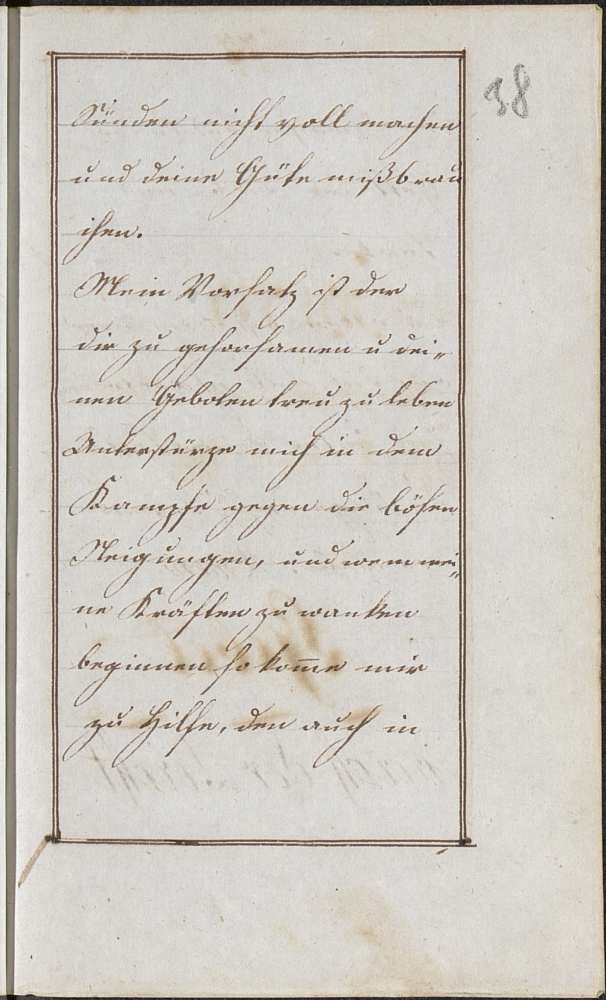 38
Sünden nicht voll machen
und deine Güte mißbrau
chen.
Mein Vorsatz ist der
dir zu gehorsamen u dei„
nen Geboten treu zu leben
Unterstürze mich in dem
Kampfe gegen die bösen
Neigungen, und wenn mei„
ne Kräften zu wanken
beginnen so kom̅e mir
zu Hilfe, den auch in